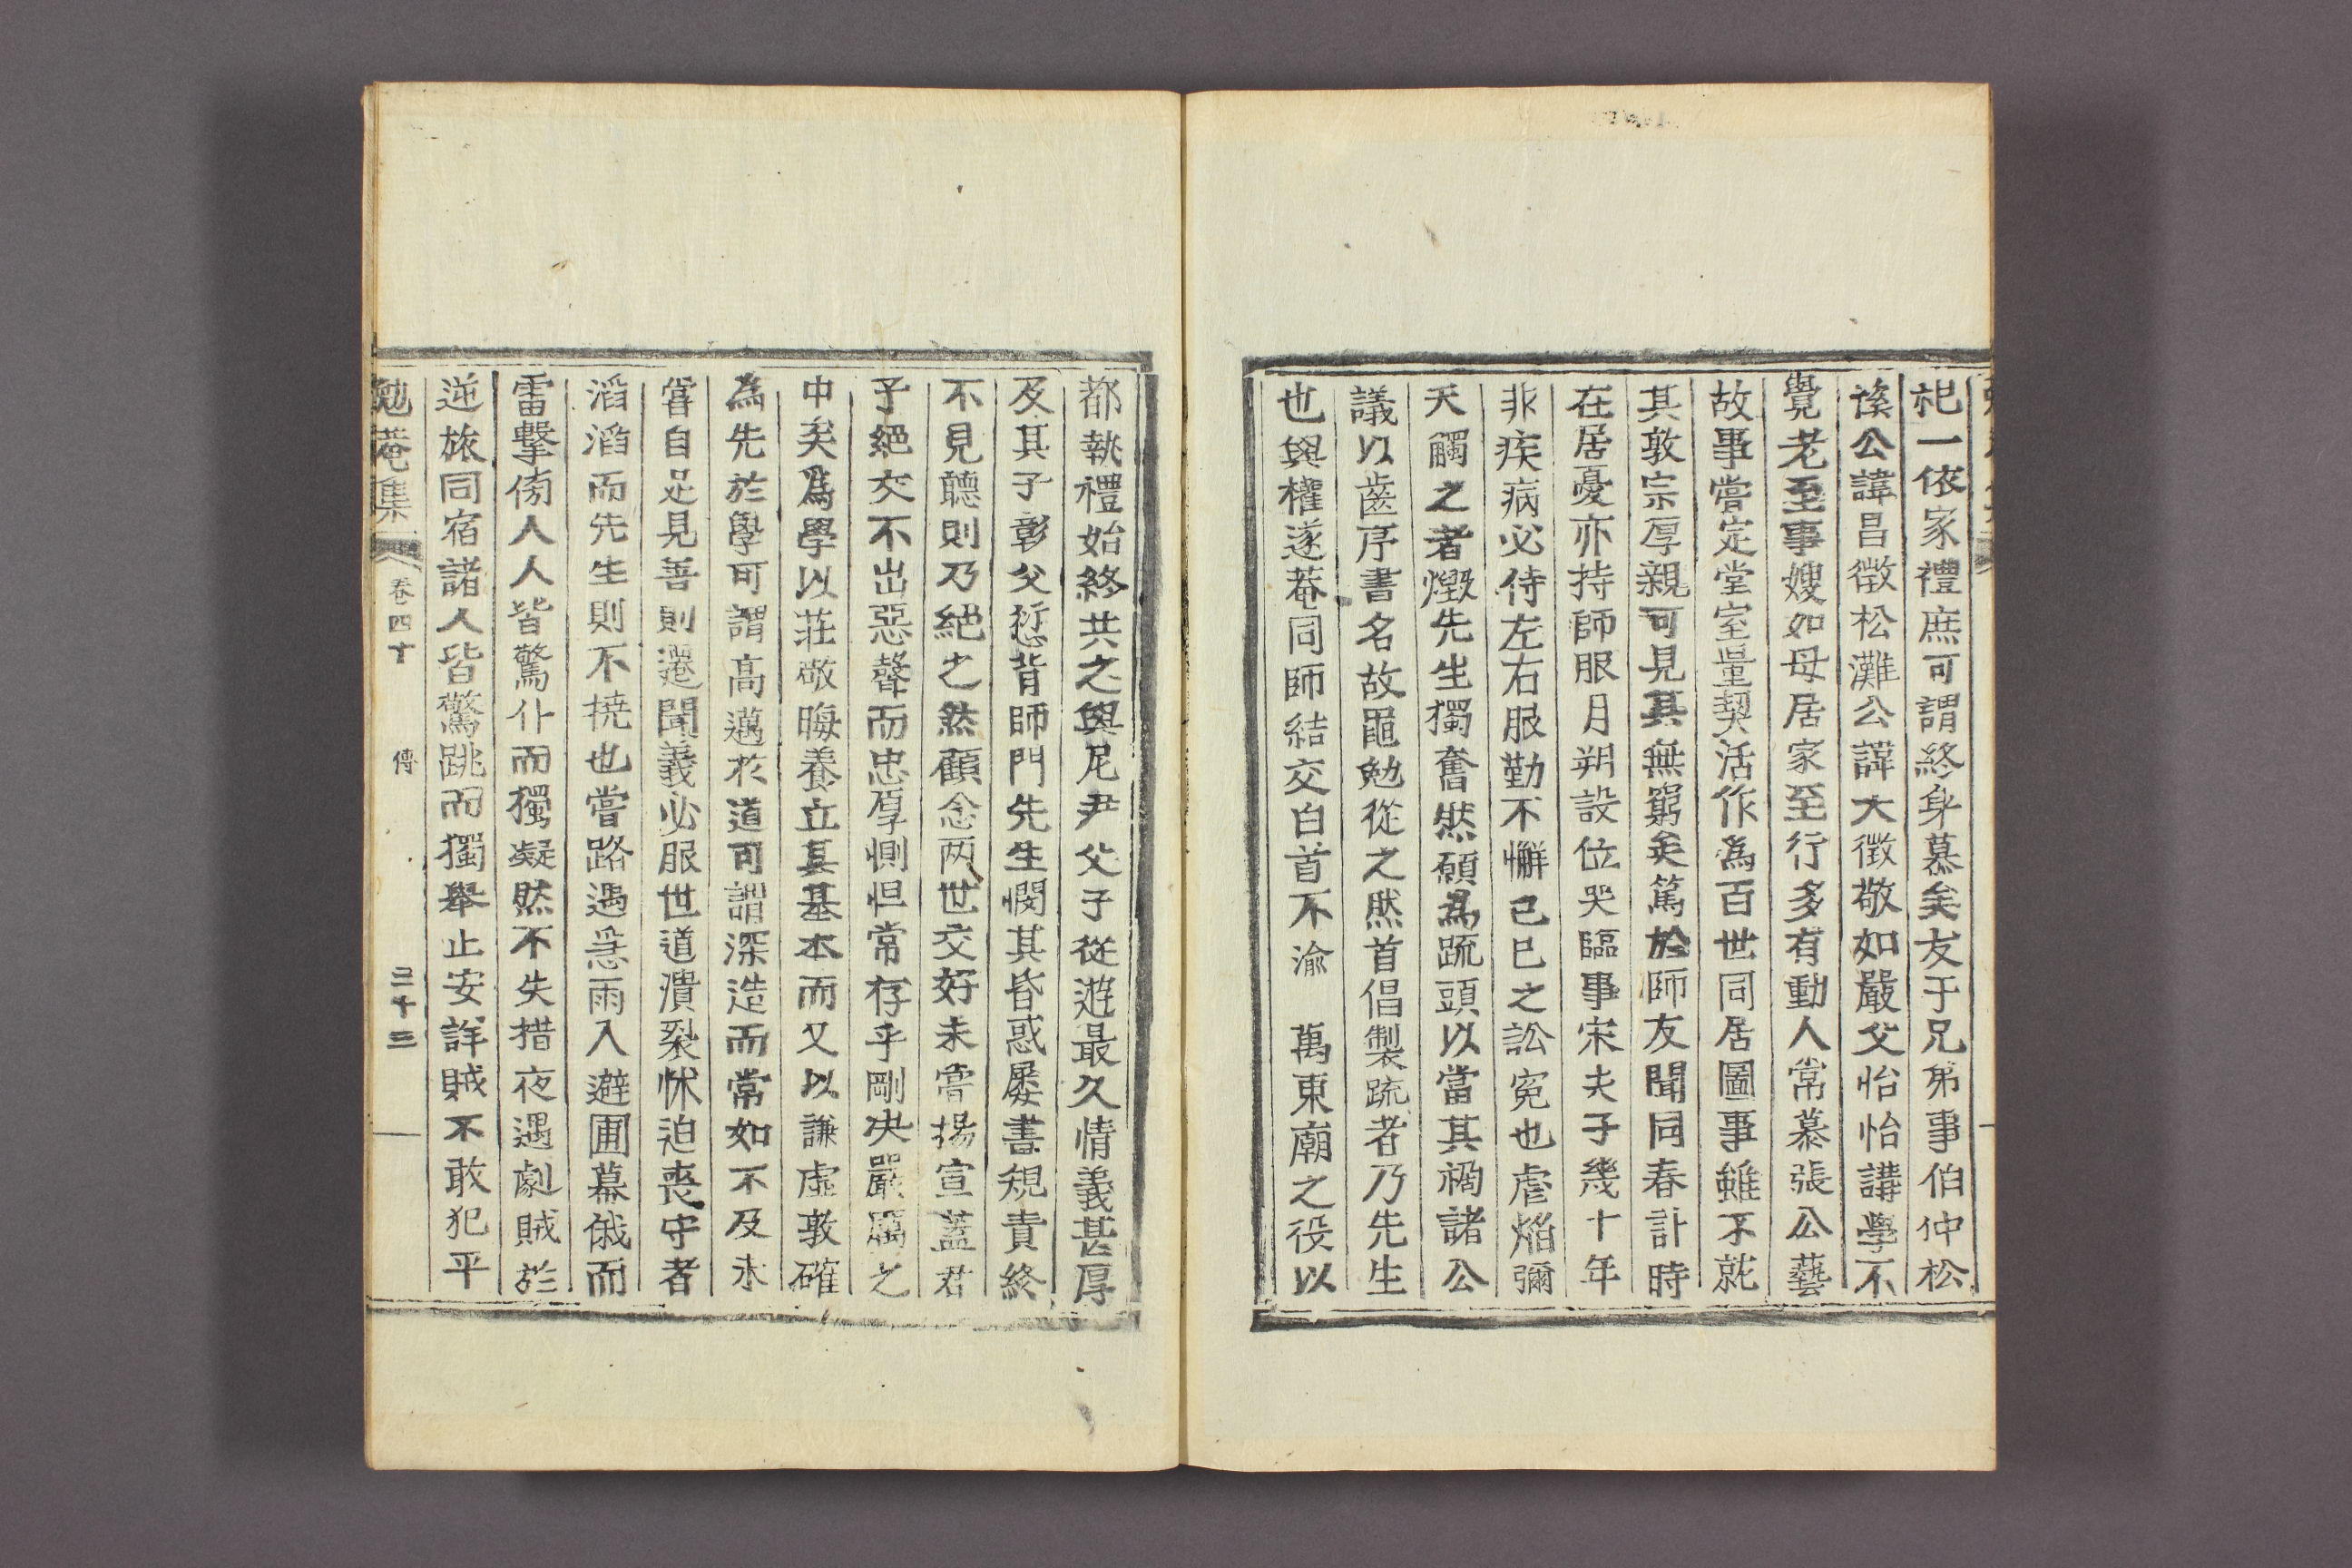 祀一依家禮庶可謂終身慕矣友于兄弟事伯仲松
溪公諱昌徵松灘公諱大徵敬如嚴父怡怡講學不
覺老至事嫂如母居家至行多有動人常慕張公藝
故事嘗定堂室量契活作爲百世同居圖事雖不就
其敦宗厚親可見其無窮矣篤於師友聞同春訃時
在居憂亦持師服月朔設位哭臨事宋夫子幾十年
非疾病必侍左右服勤不懈己巳之訟寃也虐焰彌
天觸之者燬先生獨奮然願爲䟽頭以當其禍諸公
議以齒序書名故黽勉從之然首倡製疏者乃先生
也與權遂菴同師結交白首不渝 萬東廟之役以
都執禮始終共之與尼尹父子從遊最久情義甚厚
及其子彰父愆背師門先生憫其昏惑屢書規責終
不見聽則乃絕之然顧念兩世交好未嘗揚宣蓋君
子絕交不出惡聲而忠厚惻怛常存乎剛决嚴厲之
中矣爲學以莊敬晦養立其基本而又以謙虛敦確
爲先於學可謂高邁於道可謂深造而常如不及未
嘗自足見善則遷聞義必服世道潰裂怵迫喪守者
滔滔而先生則不撓也嘗路遇急雨入避圃幕俄而
雷擊傍人人皆驚仆而獨凝然不失措夜遇劇賊於
逆旅同宿諸人皆驚跳而獨擧止安詳賊不敢犯平
勉菴集 卷四十 傳 三十三